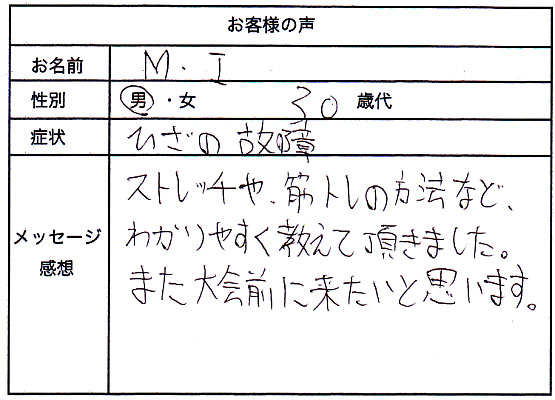 お客様の声
お名前 M.I
性別 男・女 30 歳代
症状 ひざの故障
メッセージ感想
ストレッチや、筋トレの方法など、
わかりやすく教えて頂きました。
また大会前に来たいと思います。